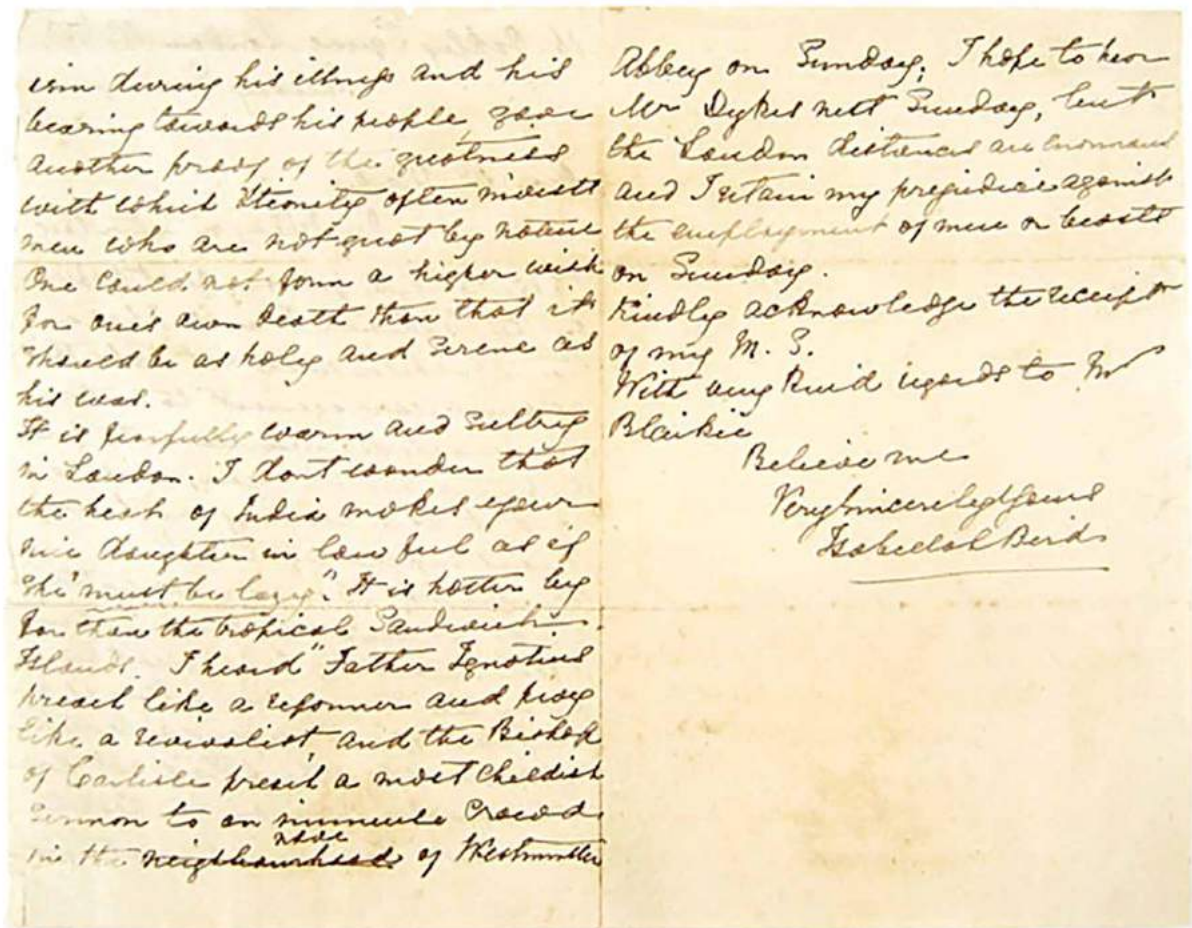 ism during his illness and his
bearing towards his people, gave
another proof of the greatness
with which Eternity often invests
men who are not great by nature
One could not form a higher wish
for one's own death than that it
should be as holy and serene as
his was.
It is fearfully warm and sultry
in London. I dont wonder that
the heat of India makes your
nice daughter in law feel as if
she "must be lazy". It is hotter by
far than the tropical Sandwich
Islands. I heard "Father Ignatius
preach like a reformer and pray
like a revivalist, and the Bishop
of Carlisle preach a most childish
sermon to an immense crowd
nave
in the neighbourhood of Westminster
Abbey on Sunday; I hope to hear
Mr Dykes next Sunday, but
the London distances are enormous
and I retain my prejudice against
the employment of men or beasts
on Sunday.
Kindly acknowledge the receipt
of my M. S.
With very kind regards to
Blaikie
Believe me
Very sincerely yours
Isabella L Bird